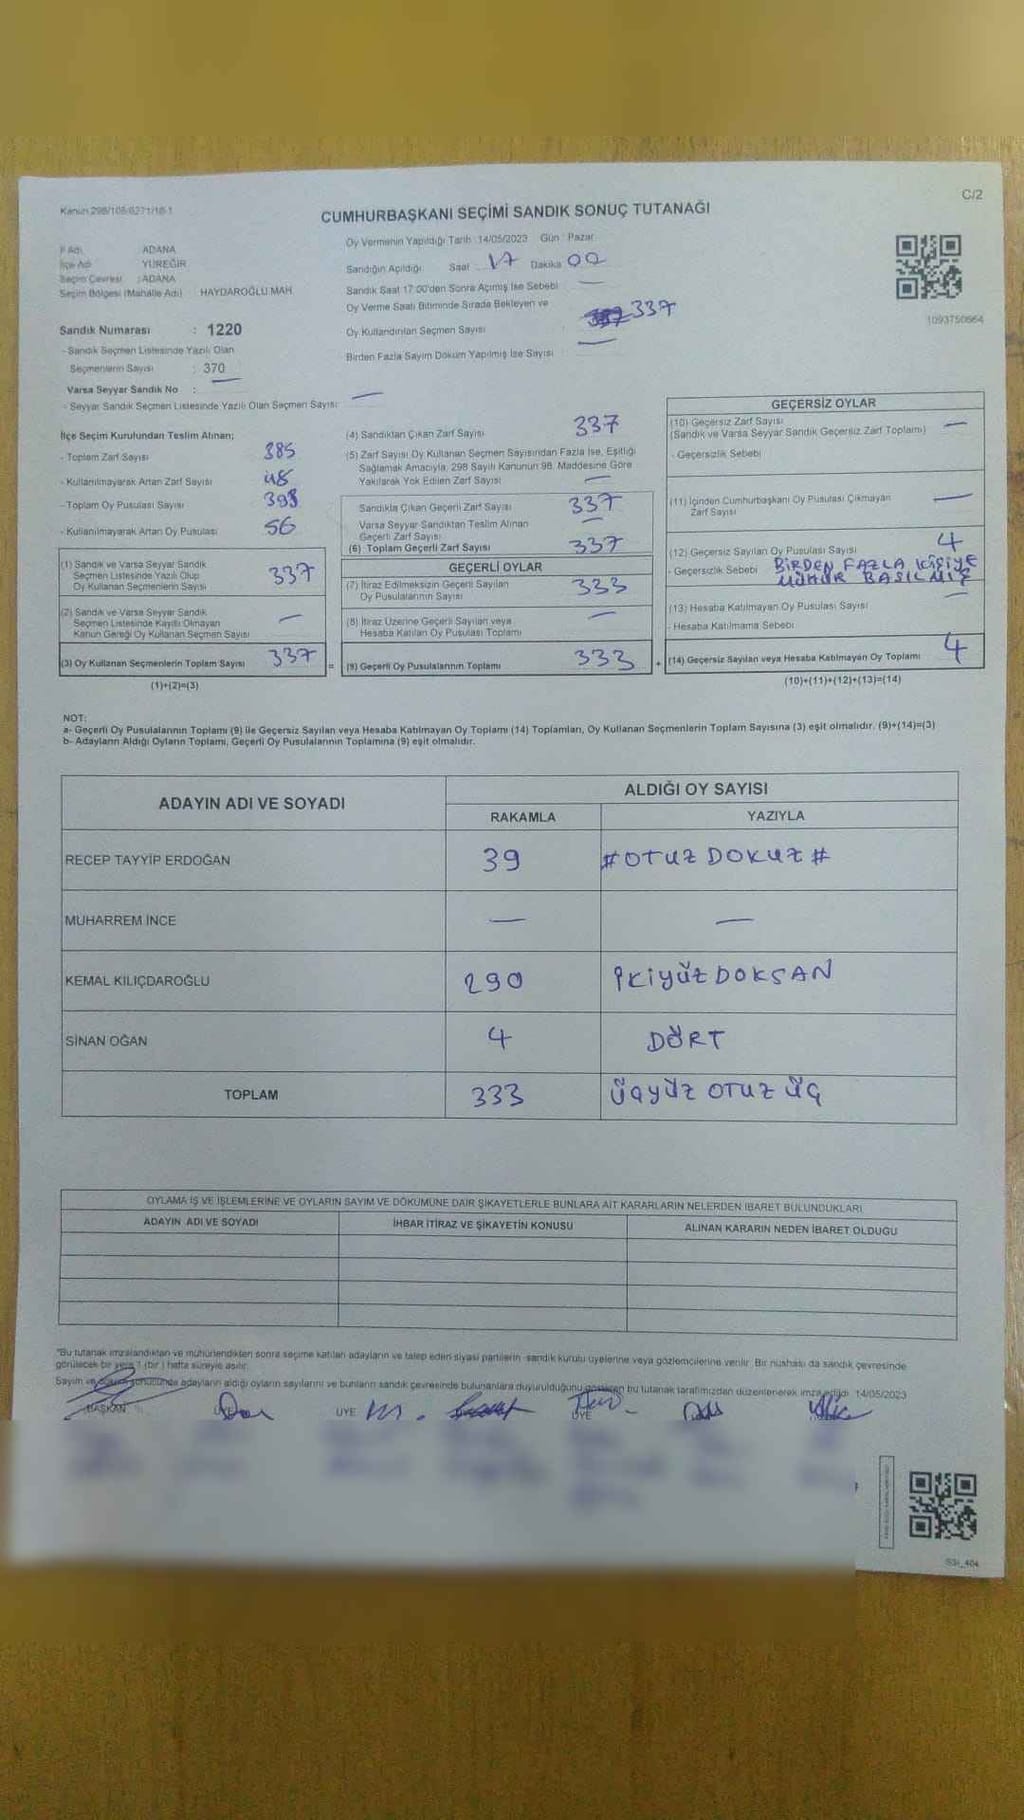 Kanun 298/105/6271/18-1
C/2
CUMHURBAŞKANI SEÇİMİ SANDIK SONUÇ TUTANAĞI
İl Adı ADANA
İlçe Adı YÜREĞİR
Seçim Çevresi : ADANA
Seçim Bölgesi (Mahalle Adı) HAYDAROĞLU MAH.
Sandık Numarası : 1220
- Sandık Seçmen Listesinde Yazılı Olan
Seçmenlerin Sayısı : 370
Varsa Seyyar Sandık No : —
- Seyyar Sandık Seçmen Listesinde Yazılı Olan Seçmen Sayısı: —
Oy Vermenin Yapıldığı Tarih :14/05/2023 Gün : Pazar
Sandığın Açıldığı Saat : 17 Dakika 00
Sandık Saat 17:00'den Sonra Açılmış İse Sebebi —
Oy Verme Saati Bitiminde Sırada Bekleyen ve
Oy Kullandırılan Seçmen Sayısı 337
Birden Fazla Sayım Döküm Yapılmış İse Sayısı —
1093750664
İlçe Seçim Kurulundan Teslim Alınan;
- Toplam Zarf Sayısı 385
- Kullanılmayarak Artan Zarf Sayısı 48
- Toplam Oy Pusulası Sayısı 393
- Kullanılmayarak Artan Oy Pusulası 56
(1) Sandık ve Varsa Seyyar Sandık
Seçmen Listesinde Yazılı Olup
Oy Kullanan Seçmenlerin Sayısı 337
(2) Sandık ve Varsa Seyyar Sandık
Seçmen Listesinde Kayıtlı Olmayan
Kanun Gereği Oy Kullanan Seçmen Sayısı —
(3) Oy Kullanan Seçmenlerin Toplam Sayısı 337
(1)+(2)=(3)
=
(4) Sandıktan Çıkan Zarf Sayısı 337
(5) Zarf Sayısı Oy Kullanan Seçmen Sayısından Fazla İse, Eşitliği
Sağlamak Amacıyla, 298 Sayılı Kanunun 98. Maddesine Göre
Yakılarak Yok Edilen Zarf Sayısı —
Sandıkta Çıkan Geçerli Zarf Sayısı 337
Varsa Seyyar Sandıktan Teslim Alınan
Geçerli Zarf Sayısı —
(6) Toplam Geçerli Zarf Sayısı 337
GEÇERLİ OYLAR
(7) İtiraz Edilmeksizin Geçerli Sayılan
Oy Pusulalarının Sayısı 333
(8) İtiraz Üzerine Geçerli Sayılan veya
Hesaba Katılan Oy Pusulası Toplamı —
(9) Geçerli Oy Pusulalarının Toplamı 333
+
GEÇERSİZ OYLAR
(10) Geçersiz Zarf Sayısı —
(Sandık ve Varsa Seyyar Sandık Geçersiz Zarf Toplamı)
- Geçersizlik Sebebi
(11) İçinden Cumhurbaşkanı Oy Pusulası Çıkmayan —
Zarf Sayısı
(12) Geçersiz Sayılan Oy Pusulası Sayısı 4
- Geçersizlik Sebebi BİRDEN FAZLA KİŞİYE
MÜHÜR BASILMIŞ
(13) Hesaba Katılmayan Oy Pusulası Sayısı —
- Hesaba Katılmama Sebebi
(14) Geçersiz Sayılan veya Hesaba Katılmayan Oy Toplamı 4
(10)+(11)+(12)+(13)=(14)
NOT:
a- Geçerli Oy Pusulalarının Toplamı (9) ile Geçersiz Sayılan veya Hesaba Katılmayan Oy Toplamı (14) Toplamları, Oy Kullanan Seçmenlerin Toplam Sayısına (3) eşit olmalıdır. (9)+(14)=(3)
b- Adayların Aldığı Oyların Toplamı, Geçerli Oy Pusulalarının Toplamına (9) eşit olmalıdır.
ADAYIN ADI VE SOYADI ALDIĞI OY SAYISI
RAKAMLA YAZIYLA
RECEP TAYYİP ERDOĞAN 39 #OTUZ DOKUZ#
MUHARREM İNCE — —
KEMAL KILIÇDAROĞLU 290 İKİYÜZ DOKSAN
SİNAN OĞAN 4 DÖRT
TOPLAM 333 ÜÇYÜZ OTUZ ÜÇ
OYLAMA İŞ VE İŞLEMLERİNE VE OYLARIN SAYIM VE DÖKÜMÜNE DAİR ŞİKAYETLERLE BUNLARA AİT KARARLARIN NELERDEN İBARET BULUNDUKLARI
ADAYIN ADI VE SOYADI İHBAR İTİRAZ VE ŞİKAYETİN KONUSU ALINAN KARARIN NEDEN İBARET OLDUĞU
*Bu tutanak imzalandıktan ve mühürlendikten sonra seçime katılan adayların ve talep eden siyasi partilerin sandık kurulu üyelerine veya gözlemcilerine verilir. Bir nüshası da sandık çevresinde
görülecek bir yere 1 (bir ) hafta süreyle asılır.
Sayım ve sonucunda adayların aldığı oyların sayılarını ve bunların sandık çevresinde bulunanlara duyurulduğunu bu tutanak tarafımızdan düzenlenerek imza edildi. 14/05/2023
BAŞKAN ÜYE ÜYE ÜYE